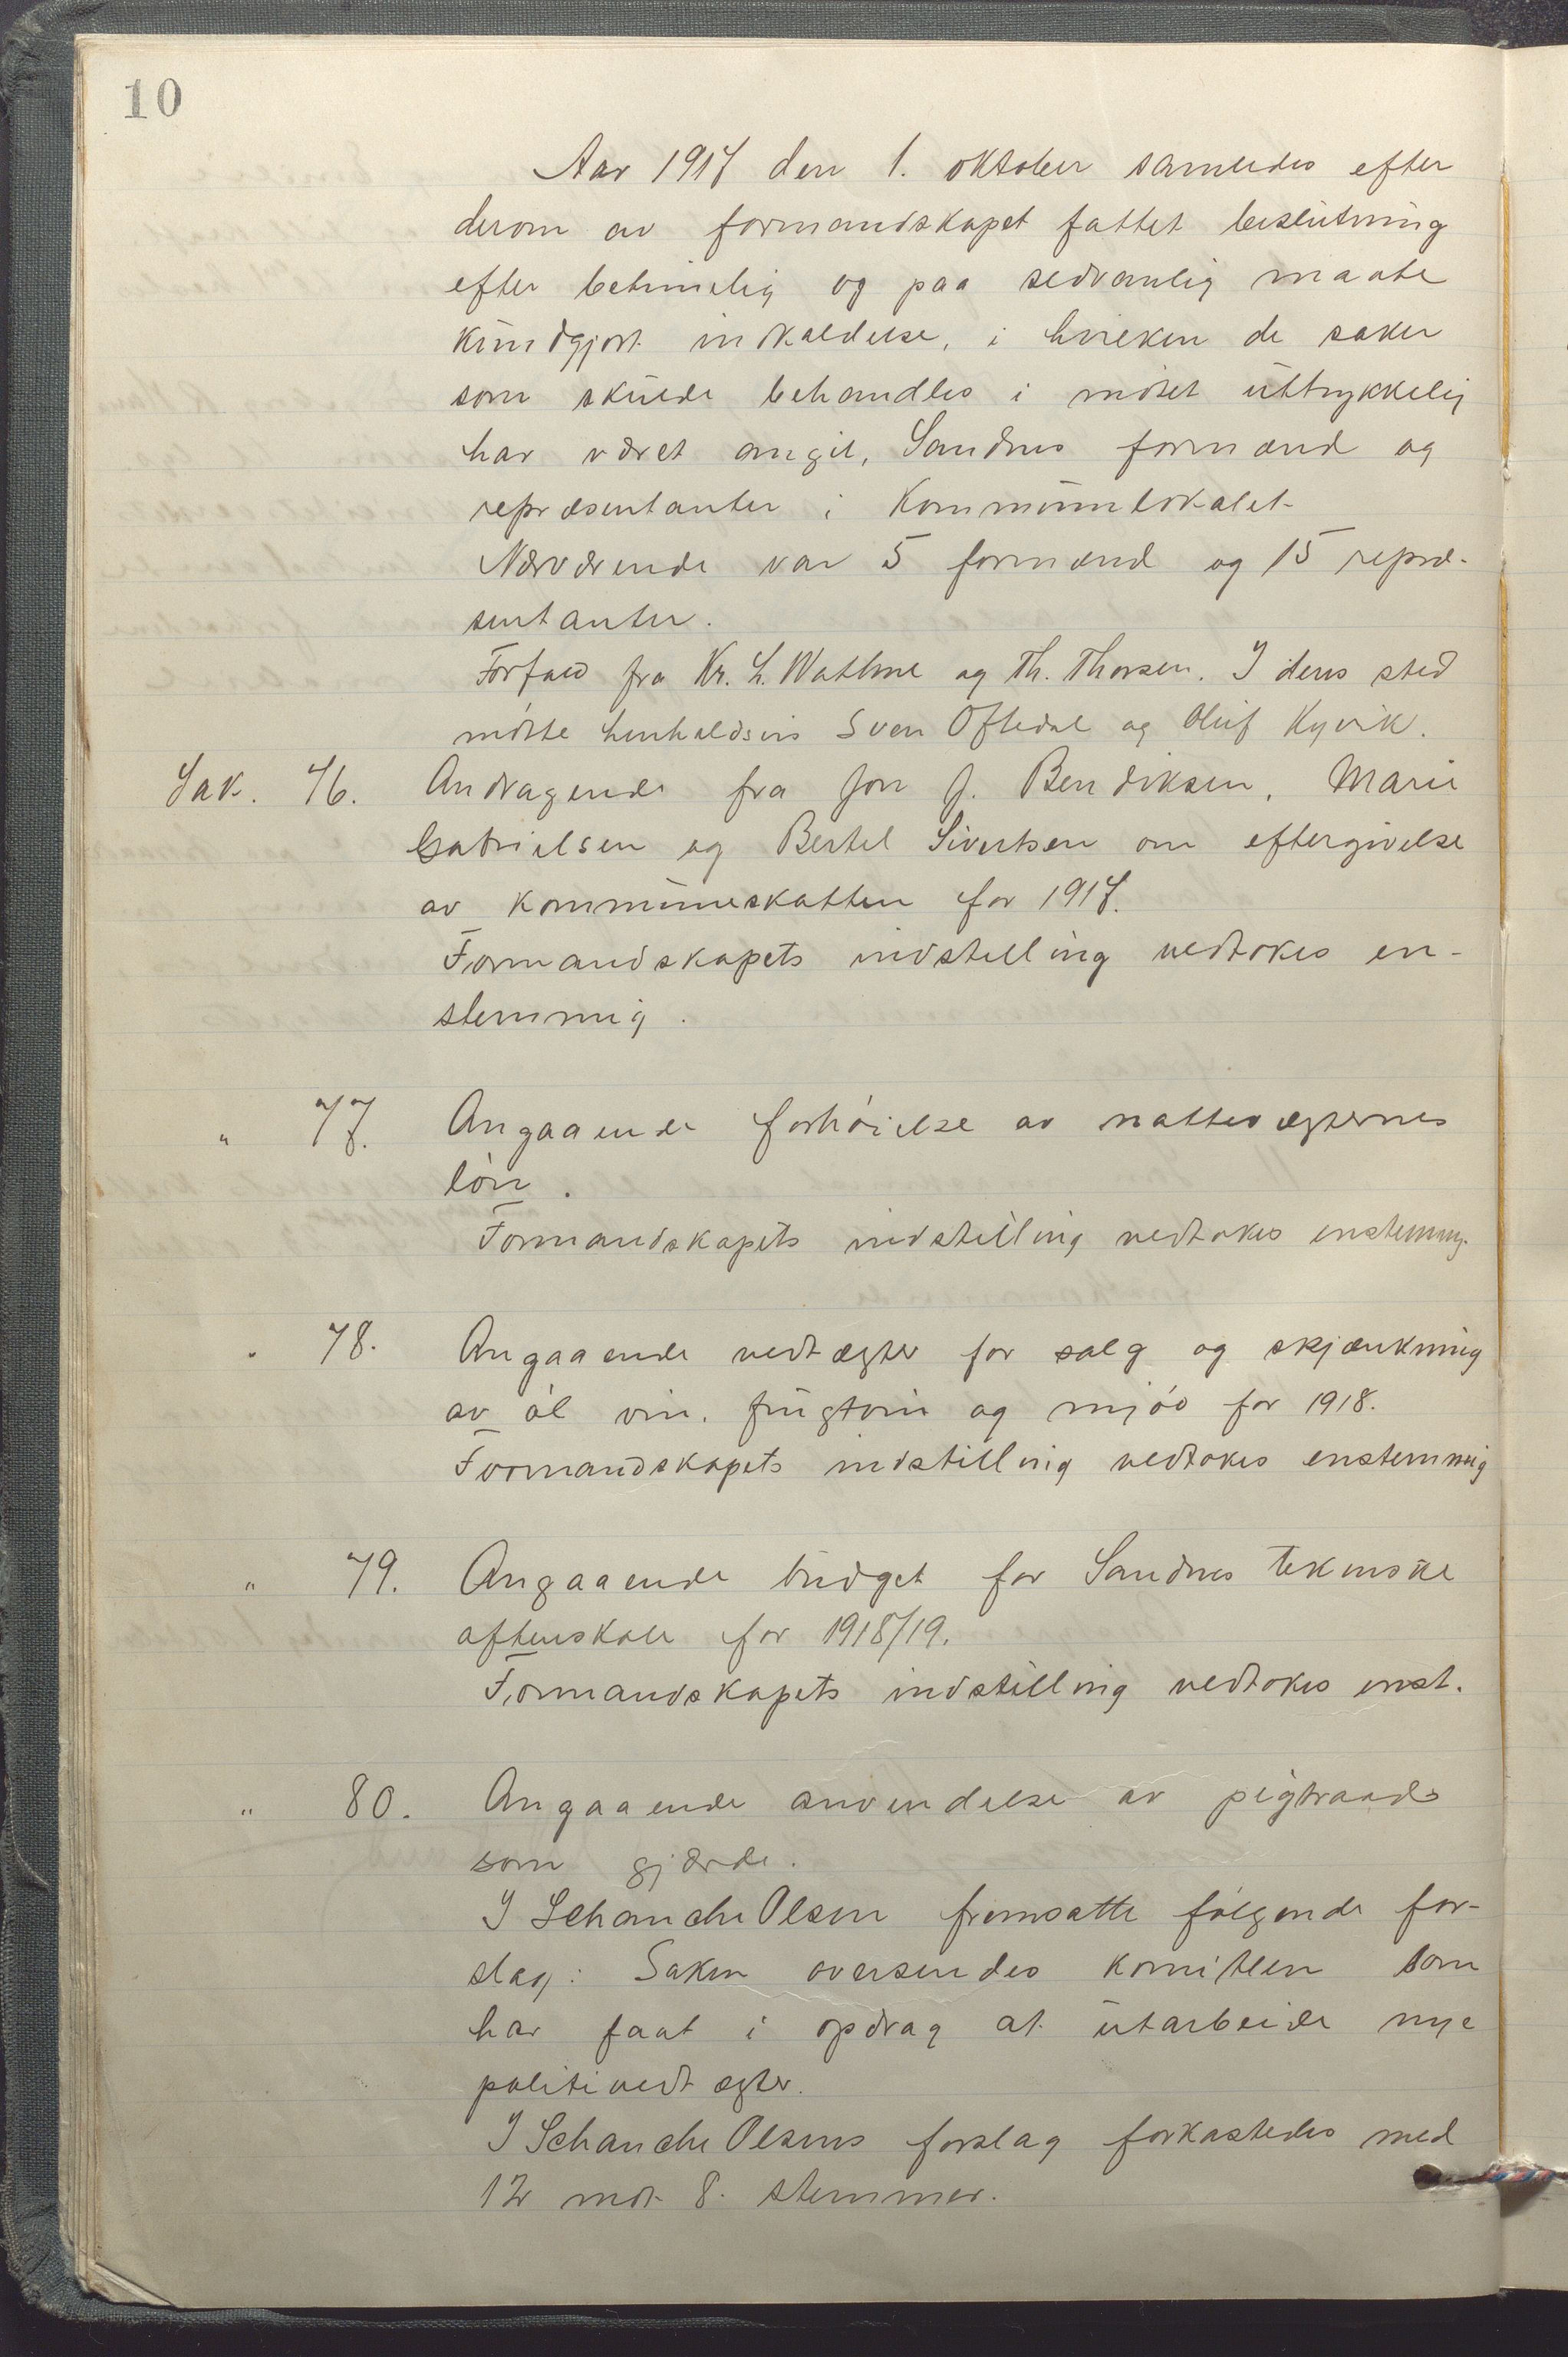 10
Aar 1917 den 1. oktober samledes efter
derom av formandskapet fattet beslutning
efter betimelig og paa sedvanlig maate
kundgjort indkaldelse, i hvilken de saker
som skulde behandles i møtet uttrykkelig
har været angit, Sandnes formænd og
repræsentanter i Kommunelokalet.
Nærværende var 5 formænd og 15 repræ-
sentanter.
Forfald fra Kr. L. Wathne og Th. Thorsen. I deres sted
møtte henholdsvis Sven Oftedal og Oluf Kyvik.
Sak. 76. Andragende fra Jon J. Bendiksen, Marie
Gabrielsen og Bertel Sivertsen om eftergivelse
av kommuneskatten for 1917.
Formandskapets indstilling vedtokes en-
stemmig.
" 77. Angaaende forhøielse av nattevægternes
løn.
Formandskapets indstilling vedtokes enstemmig.
" 78. Angaaende vedtægter for salg og skjænkning
av øl vin, frugtvin og mjød for 1918.
Formandskapets indstilling vedtokes enstemmig
" 79. Angaaende budget for Sandnes tekniske
aftenskole for 1918/19.
Formandskapets indstilling vedtokes enst.
" 80. Angaaende anvendelse av pigtraad
som gjærde.
J Schanche Olsen fremsatte følgende for-
slag: Saken oversendes komiteen som
har faat i opdrag at utarbeide nye
politivedtægter.
J Schanche Olsens forslag forkastedes med
12 mot 8 stemmer.